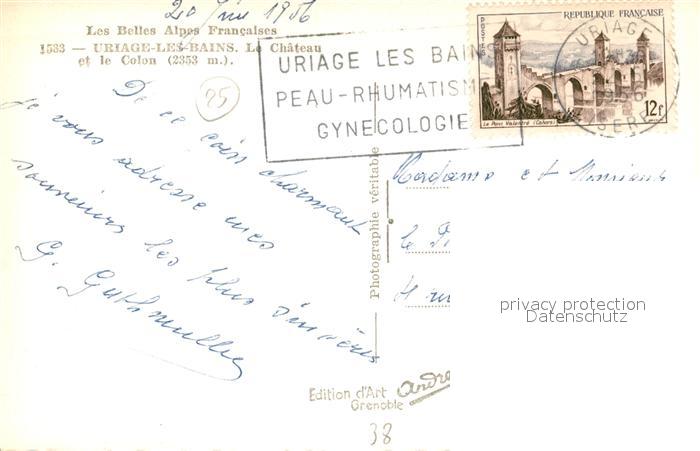 1956
Les Belles Alpes Françaises
1583 — URIAGE-LES-BAINS. Le Château
et le Colon (2353 m.).
25
URIAGE LES BAINS
PEAU-RHUMATISM
GYNECOLOGIE
RÉPUBLIQUE FRANÇAISE
POSTES
12F
Le Pont Valentré (Cahors)
URIAGE
ISERE
De ce coin charmant
je vous adresse mes
souvenirs les plus sincères
G.
Photographie véritable
Madame et Monsieur
privacy protection
Datenschutz
Edition d'Art André
Grenoble
38